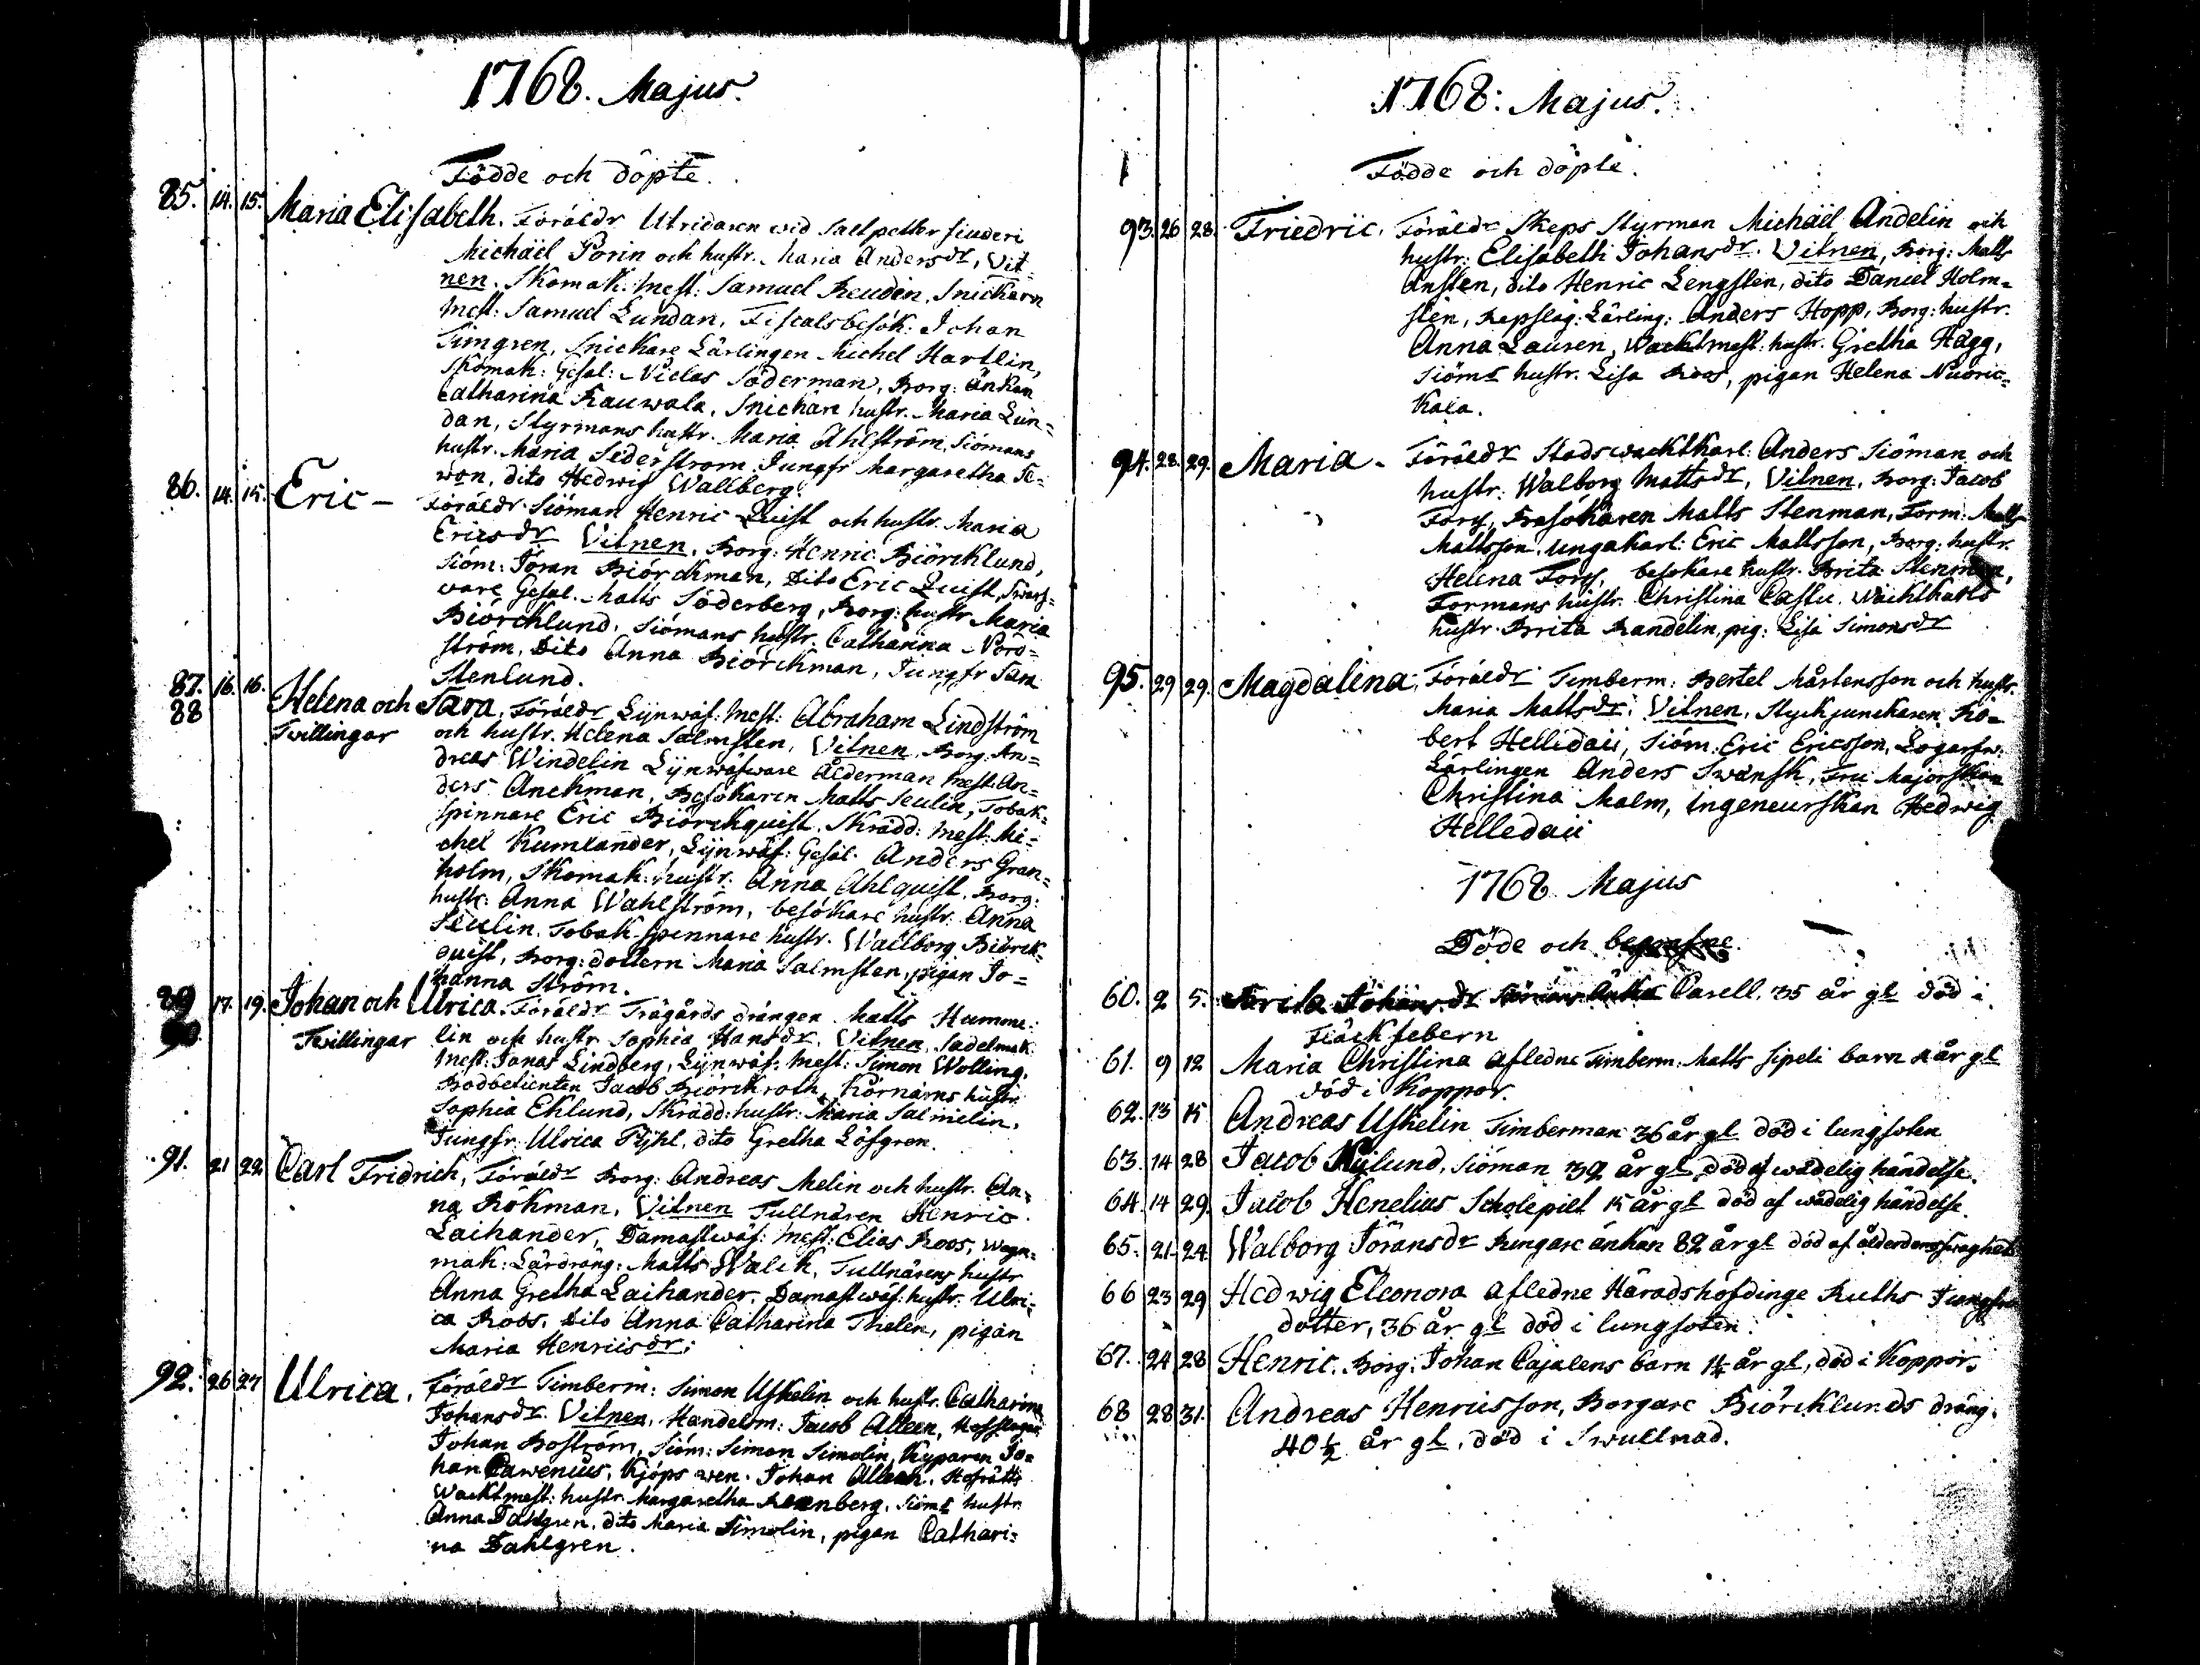 1768. Majus.
Födde och döpte.
85. 14. 15. Maria Elisabeth. Föräldr Utridaren wid Saltpetter siuderi
Michaël Porin och hustr. Maria Andersdr, Vit-
nen. Skomak: Mest: Samuel Reudin, Snickarn
Mest: Samuel Lundan, Fiscalsbesök. Johan
Timgren, Snickare Lärlingen Michel Hartlin,
Skomak: Gesäl: Niclas Söderman, Borg: Änkan
Catharina Rauwala, Snickare hustr. Maria Lun=
dan, Styrmans hustr. Maria Ahlström, Siömans
hustr. Maria Sederstrom Jungfr Margaretha Te=
won, dito Hedwig Wallberg.
86. 14. 15. Eric – Föräldr Siöman Henric Quist och hustr. Maria
Ericsdr Vitnen, Borg: Henric Biörcklund,
Siöm: Jöran Biörckman, Dito Eric Quist, Swarf=
ware Gesäl. Matts Söderberg, Borg: hustr Maria
Biörcklund. Siömans hustr. Catharina Norö=
ström, Dito Anna Biörckman, Jungfr Sara
Stenlund.
87. 16. 16. Helena och Sara, Föräldr Lijnwäf: Mest: Abraham Lindström
88 Tvillingar och hustr. Helena Salmsten, Vitnen, Borg. An=
dreas Windelin Lijnwäfware Ålderman Mest: An=
ders Anckman, Besökaren Matts Seulin, Tobak=
spinnare Eric Biörckquist. Skrädd: Mest: Mi=
chel Kumlander, Lijnwäf: Gesäl: Anders Gran=
holm, Skomak: hustr. Anna Ahlquist, Borg:
hustr: Anna Wahlström, besökare hustr. Anna
Seulin. Tobak-spinnare hustr. Wallborg Biörck=
quist, Borg: dottern Maria Salmsten, pigan Jo=
hanna Ström.
89 17. 19. Johan och Ulrica. Föräldr Trägårds drängen Matts Humme:
90. Tvillingar lin och hustr Sophia Hansdr. Vitnen, Sadelmak.
Mest: Jonas Lindberg, Lijnwäf: Mest: Simon Wolling.
Bodbetienten Jacob Biörckroth, Körnärns hustr
Sophia Eklund, Skrädd: hustr: Maria Salmelin.
Jungfr. Ulrica Pijhl, dito Gretha Löfgren.
91. 21 22 Carl Fridrich, Föräldr Borg: Andreas Melin och hustr. An=
na Rökman, Vitnen Tullnären Henric
Laihander, Damastwäf: Mest: Elias Roos, Wagn=
mak: Lärdräng: Matts Walck, Tullnärens hustr
Anna Gretha Laihander. Damastwäf: hustr: Ulri=
ca Roos, Dito Anna Catharina Thelen, pigan
Maria Henricsdr:
92. 26 27 Ulrica. Föräldr Timberm: Simon Uskelin och hustr. Catharina
Johansdr. Vitnen, Handelsm: Jacob Alleen,
Johan Boström, Siöm: Simon Simolin, Kyparen Jo=
han Cawenius, Kjöps wen. Johan Alleen. Hofrätts
Wacktmest: hustr Margaretha Rosenberg, Siöms hustr
Anna Dahlgren, dito Maria Simolin, pigan Cathari=
na Dahlgren.
1768: Majus.
Födde och döpte.
93. 26 28. Friedric. Föräldr Skeps Styrman Michäel Andelin och
hustr: Elisabeth Johansdr. Vitnen, Borg: Matts
Ansten, dito Henric Lengsten, dito Daniel Holm=
sten, Repslag: Lärling: Anders Hopp, Borg: hustr.
Anna Lauren, Wacktmest: hustr. Gretha Hägg,
Siöms hustr. Lisa Roos, pigan Helena Nuoric=
kala.
94. 28. 29. Maria – Föräldr Stadswacktkarl: Anders Siöman och
hustr: Walborg Mattsdr, Vitnen, Borg: Jacob
Forss, Besökaren Matts Stenman, Form: Matts
Mattsson, ungakarl: Eric Mattsson, Borg: hustr.
Helena Forss, besökare hustr. Brita Stenman,
Formans hustr. Christina Castu. Wacktkarls
hustr. Brita Randelin, pig: Lisa Simonsdr
95. 29 29. Magdalena, Föräldr Timberm: Bertel Mårtensson och hustr.
Maria Mattsdr: Vitnen, Styckjunckaren Ro=
bert Hellidaii, Siöm: Eric Ericsson, Logarfw:
Lärlingen Anders Swänsk, Fru Majorskan
Christina Malm, Ingeneurskan Hedwig
Helledaii
1768 Majus
Döde och begrafne.
60. 2 5. Brita Johansdr Carell. 35 år gl död i
Fläckfebern
61. 9 12 Maria Christina afledne Timberm: Matts Sipeli barn år gl
död i Koppor.
62. 13 15 Andreas Uskelin Timberman 36 år gl död i lungsoten
63. 14 28 Jacob Nylund, Siöman 32 år gl död af wådelig händelse.
64. 14 29. Jacob Henelius Scholepilt 15 år gl död af wådelig händelse.
65. 21 24 Walborg Jöransdr Ringare änkan 82 år gl död af ålderdomssvaghet
66 23 29 Hedwig Eleonora afledne Häradshöfdinge Ruths Jungfru
dotter, 36 år gl död i lungsoten.
67. 24 28 Henric. Borg: Johan Cajalens barn 1¼ år gl, död i Koppor.
68 28 31. Andreas Henricsson, Borgare Biörcklunds dräng.
40½ år gl, död i Swullnad.